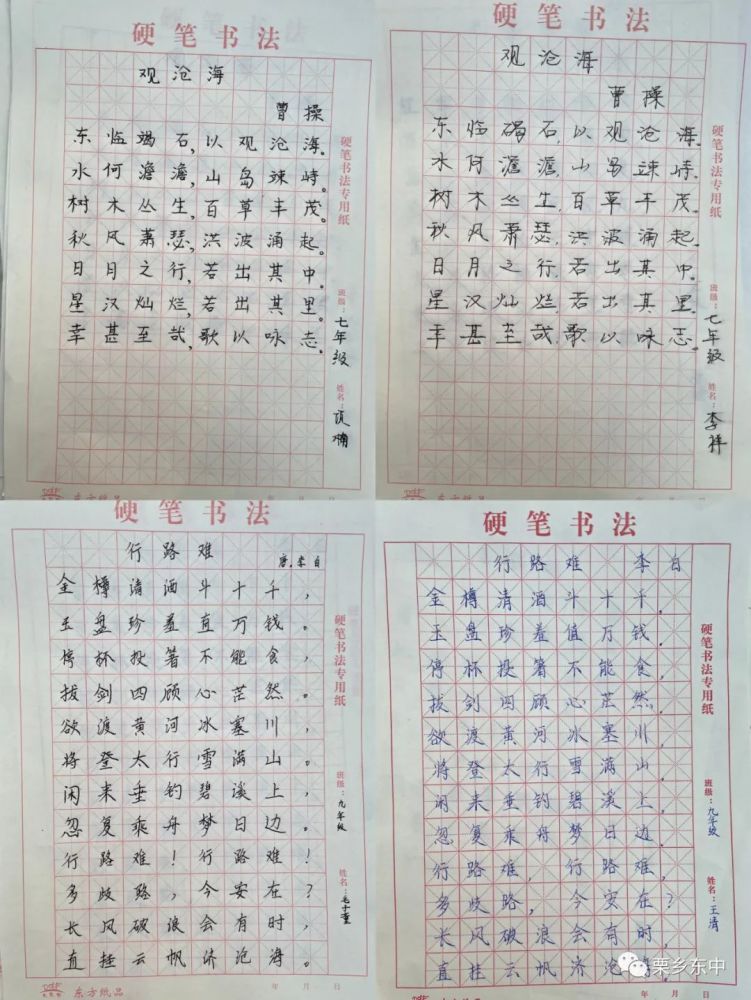 硬笔书法
观沧海
曹操
东临碣石,以观沧海。
水何澹澹,山岛竦峙。
树木丛生,百草丰茂。
秋风萧瑟,洪波涌起。
日月之行,若出其中。
星汉灿烂,若出其里。
幸甚至哉,歌以咏志。
硬笔书法专用纸
班级:七年级
姓名:
东方纸品
年 月 日
硬笔书法
观沧海
曹操
东临碣石,以观沧海。
水何澹澹,山岛竦峙。
树木丛生,百草丰茂。
秋风萧瑟,洪波涌起。
日月之行,若出其中。
星汉灿烂,若出其里。
幸甚至哉,歌以咏志。
硬笔书法专用纸
班级:七年级
姓名:李祥
东方纸品
年 月 日
硬笔书法
行路难
唐·李白
金樽清酒斗十千,
玉盘珍羞直万钱。
停杯投箸不能食,
拔剑四顾心茫然。
欲渡黄河冰塞川,
将登太行雪满山。
闲来垂钓碧溪上,
忽复乘舟梦日边。
行路难!行路难!
多歧路,今安在?
长风破浪会有时,
直挂云帆济沧海。
硬笔书法专用纸
班级:九年级
姓名:
东方纸品
年 月 日
硬笔书法
行路难 李白
金樽清酒斗十千,
玉盘珍羞值万钱。
停杯投箸不能食,
拔剑四顾心茫然,
欲渡黄河冰塞川,
将登太行雪满山.
闲来垂钓碧溪上,
忽复乘舟梦日边.
行路难,行路难,
多歧路,今安在?
长风破浪会有时,
直挂云帆济沧海
硬笔书法专用纸
班级:九年级
姓名:王清
东方纸品
年 月 日
栗乡东中